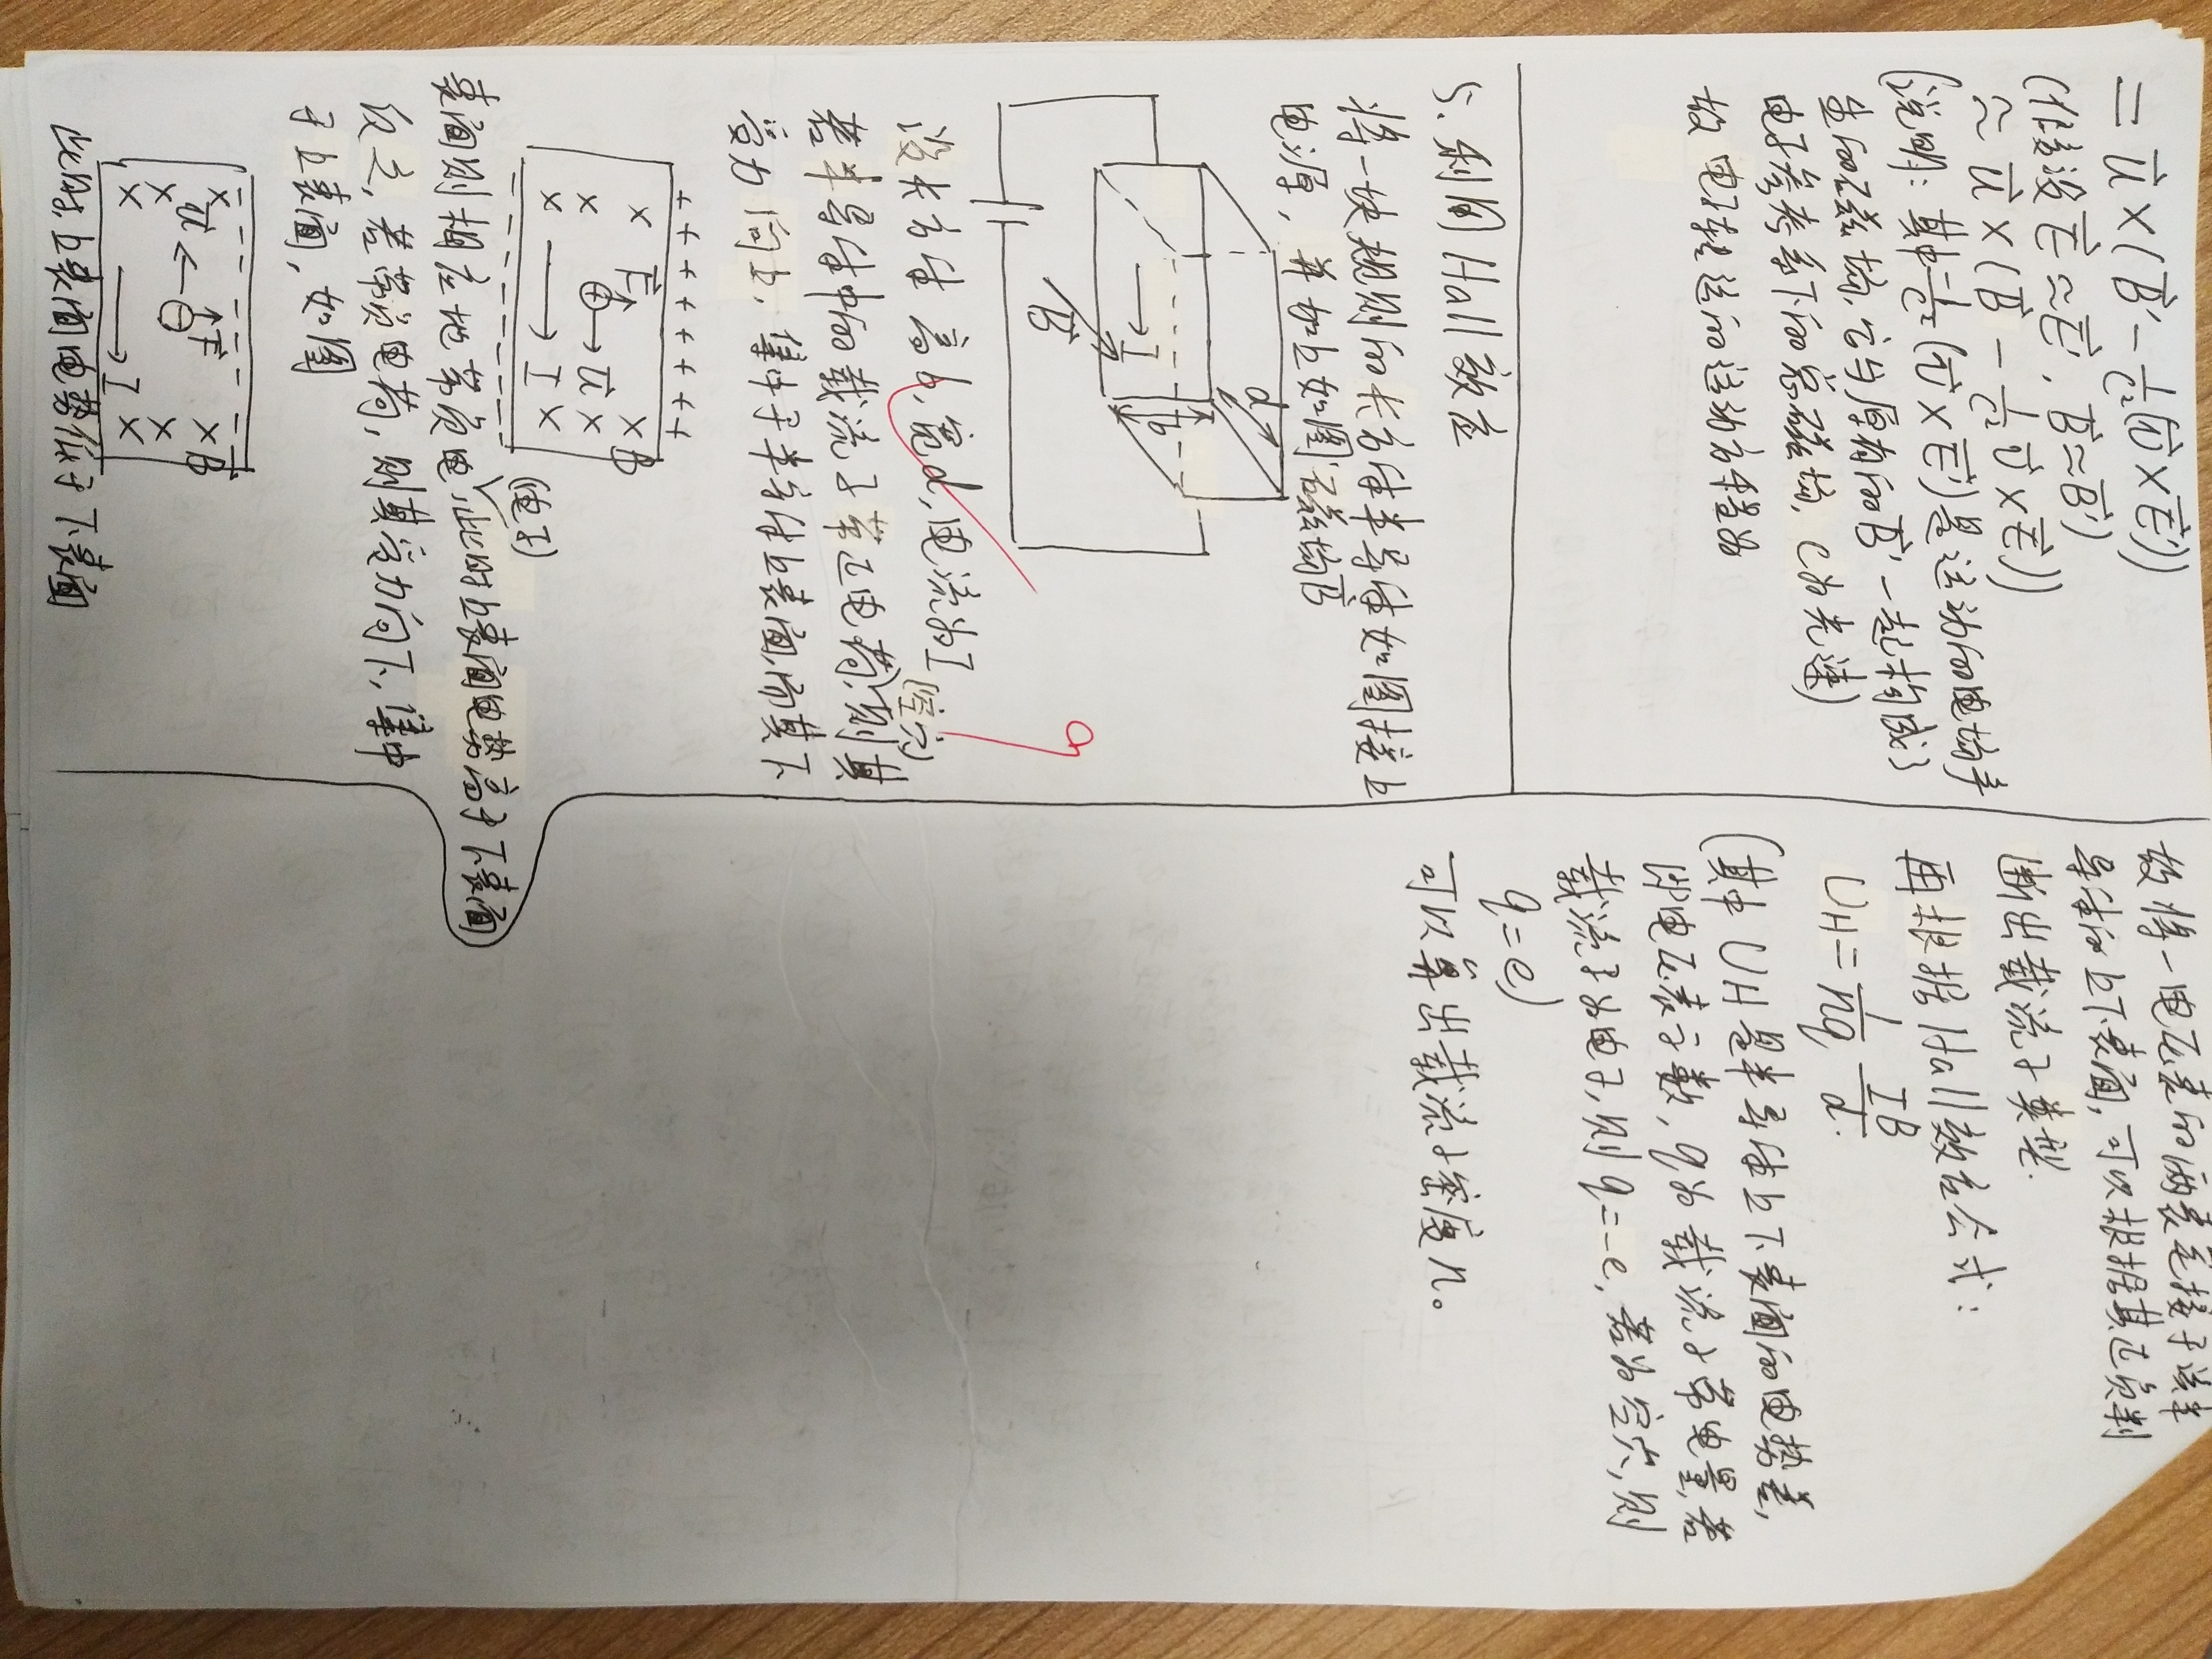 = u⃗ × (B⃗' - 1/c² (v⃗ × E⃗'))
(假设 E⃗ ≈ E⃗', B⃗ ≈ B⃗')
≈ u⃗ × (B⃗ - 1/c² v⃗ × E⃗))
(说明: 其中 -1/c² (v⃗ × E⃗') 是运动的电场产
生的磁场, 它与原有的 B⃗' 一起构成了
电子参考系下的总磁场, c为光速)
故 电子转运的运动方程为
5. 利用 Hall 效应
将一块规则的长方体半导体如图接上
电源, 并加上如图磁场B⃗
d
b
I
B⃗
设长方体 高b, 宽d, 电流为I
(空穴)
若半导体中的载流子带正电荷, 则其
受力向上, 集中于半方体上表面, 而其下
+ + + + + + + +
× F⃗ × B
× ⊕ → u⃗ ×
× → I ×
- - - - - - - -
(电子)
表面则相应地带负电, 此时上表面电势高于下表面
反之, 若带负电荷, 则其受力向下, 集中
于上表面, 如图
- - - - - - - -
× F⃗ × B⃗
u⃗ ← ⊖
× ×
× → I ×
此时, 上表面电势低于下表面
故将一电压表的两表笔接于该半
导体的上下表面, 可以根据其正负判
断出载流子类型.
再根据 Hall 效应公式:
U_H = 1/nq IB/d.
(其中 U_H 是半导体上下表面的电势差,
即电压表示数, q为载流子带电量, 若
载流子为电子, 则 q=-e, 若为空穴, 则
q=e)
可以算出载流子密度n。
9